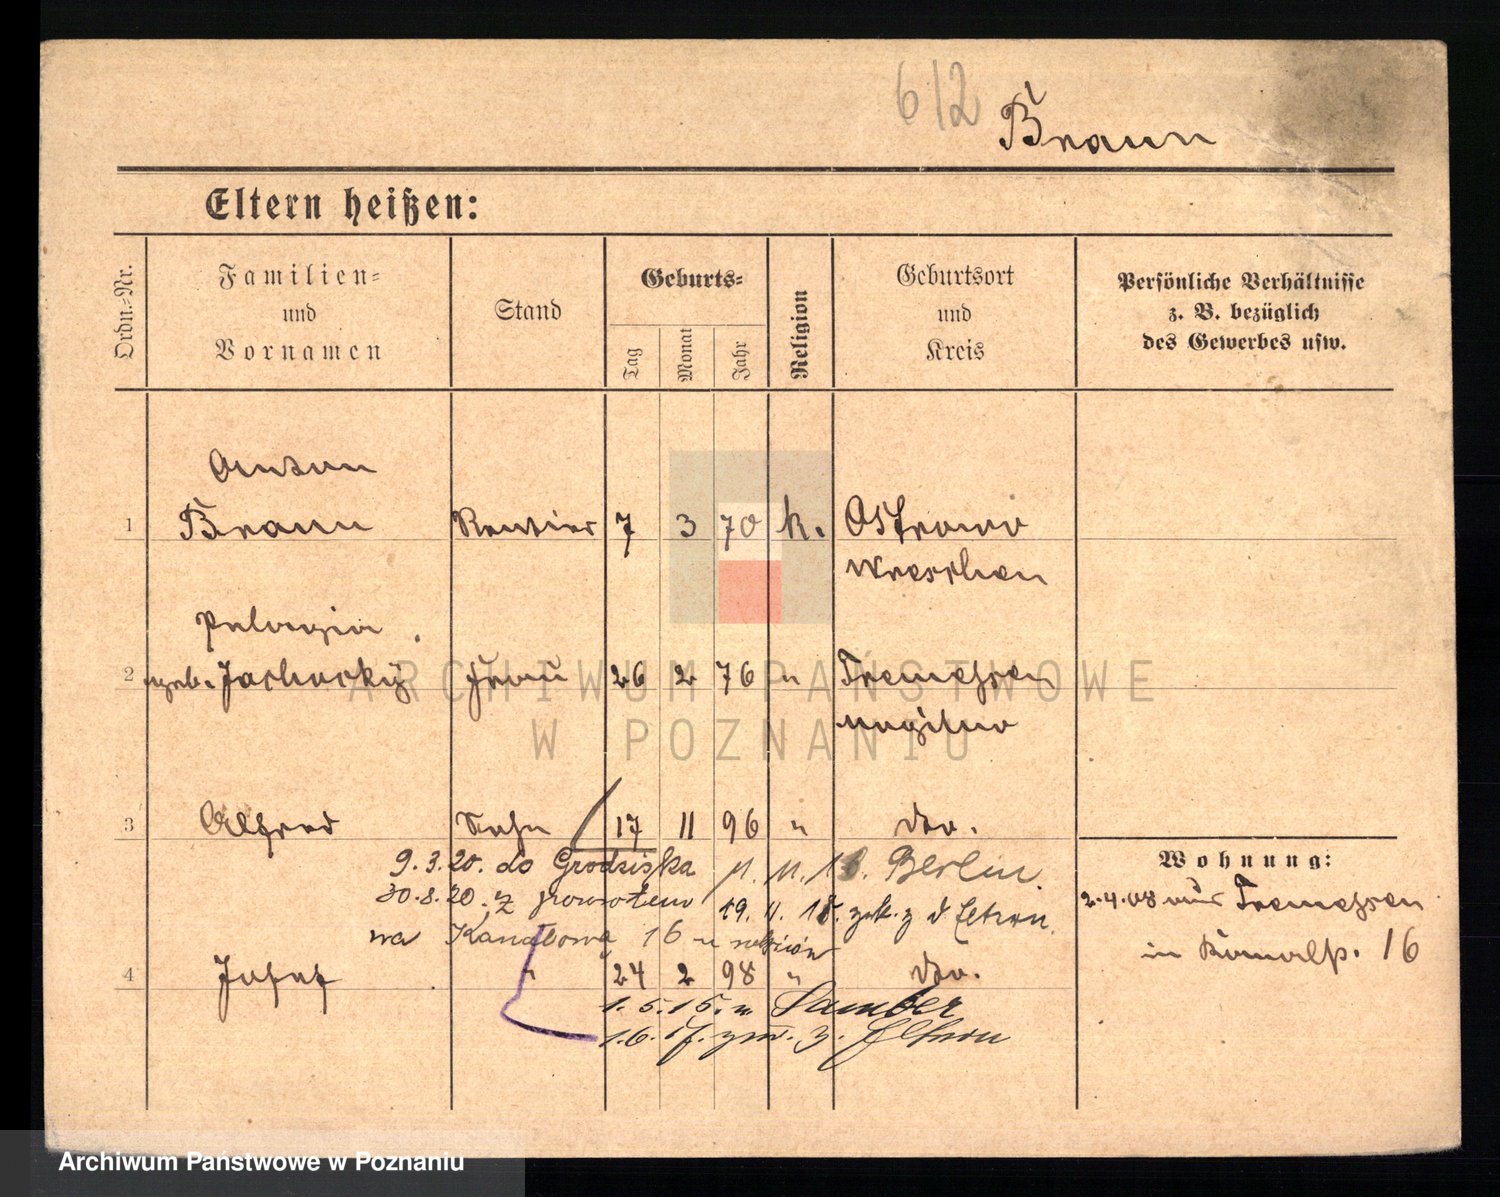 612
Braun
Eltern heißen:
Ordn.-Nr.
Familien-
und
Vornamen
Stand
Geburts-
Tag
Monat
Jahr
Religion
Geburtsort
und
Kreis
Persönliche Verhältnisse
z. B. bezüglich
des Gewerbes usw.
1 Braun Rentier 7 3 70 k. Ostrowo
Wreschen
Pelagia
2 geb. Jachecky Frau 26 2 76 " Tremessen
Mogilno
ARCHIWUM PAŃSTWOWE
W POZNANIU
3 Alfred Sohn 17 11 96 " do.
9.3.20. do Grodziska Berlin.
30.8.20. z powrotem 19. 11. 18. z d. Eltern.
na Kanałową 16
4 Josef " 24 2 98 " do.
1.5.15. n.
1.6. z. Eltern
Wohnung:
2.4.08 aus Tremessen
in 16
Archiwum Państwowe w Poznaniu